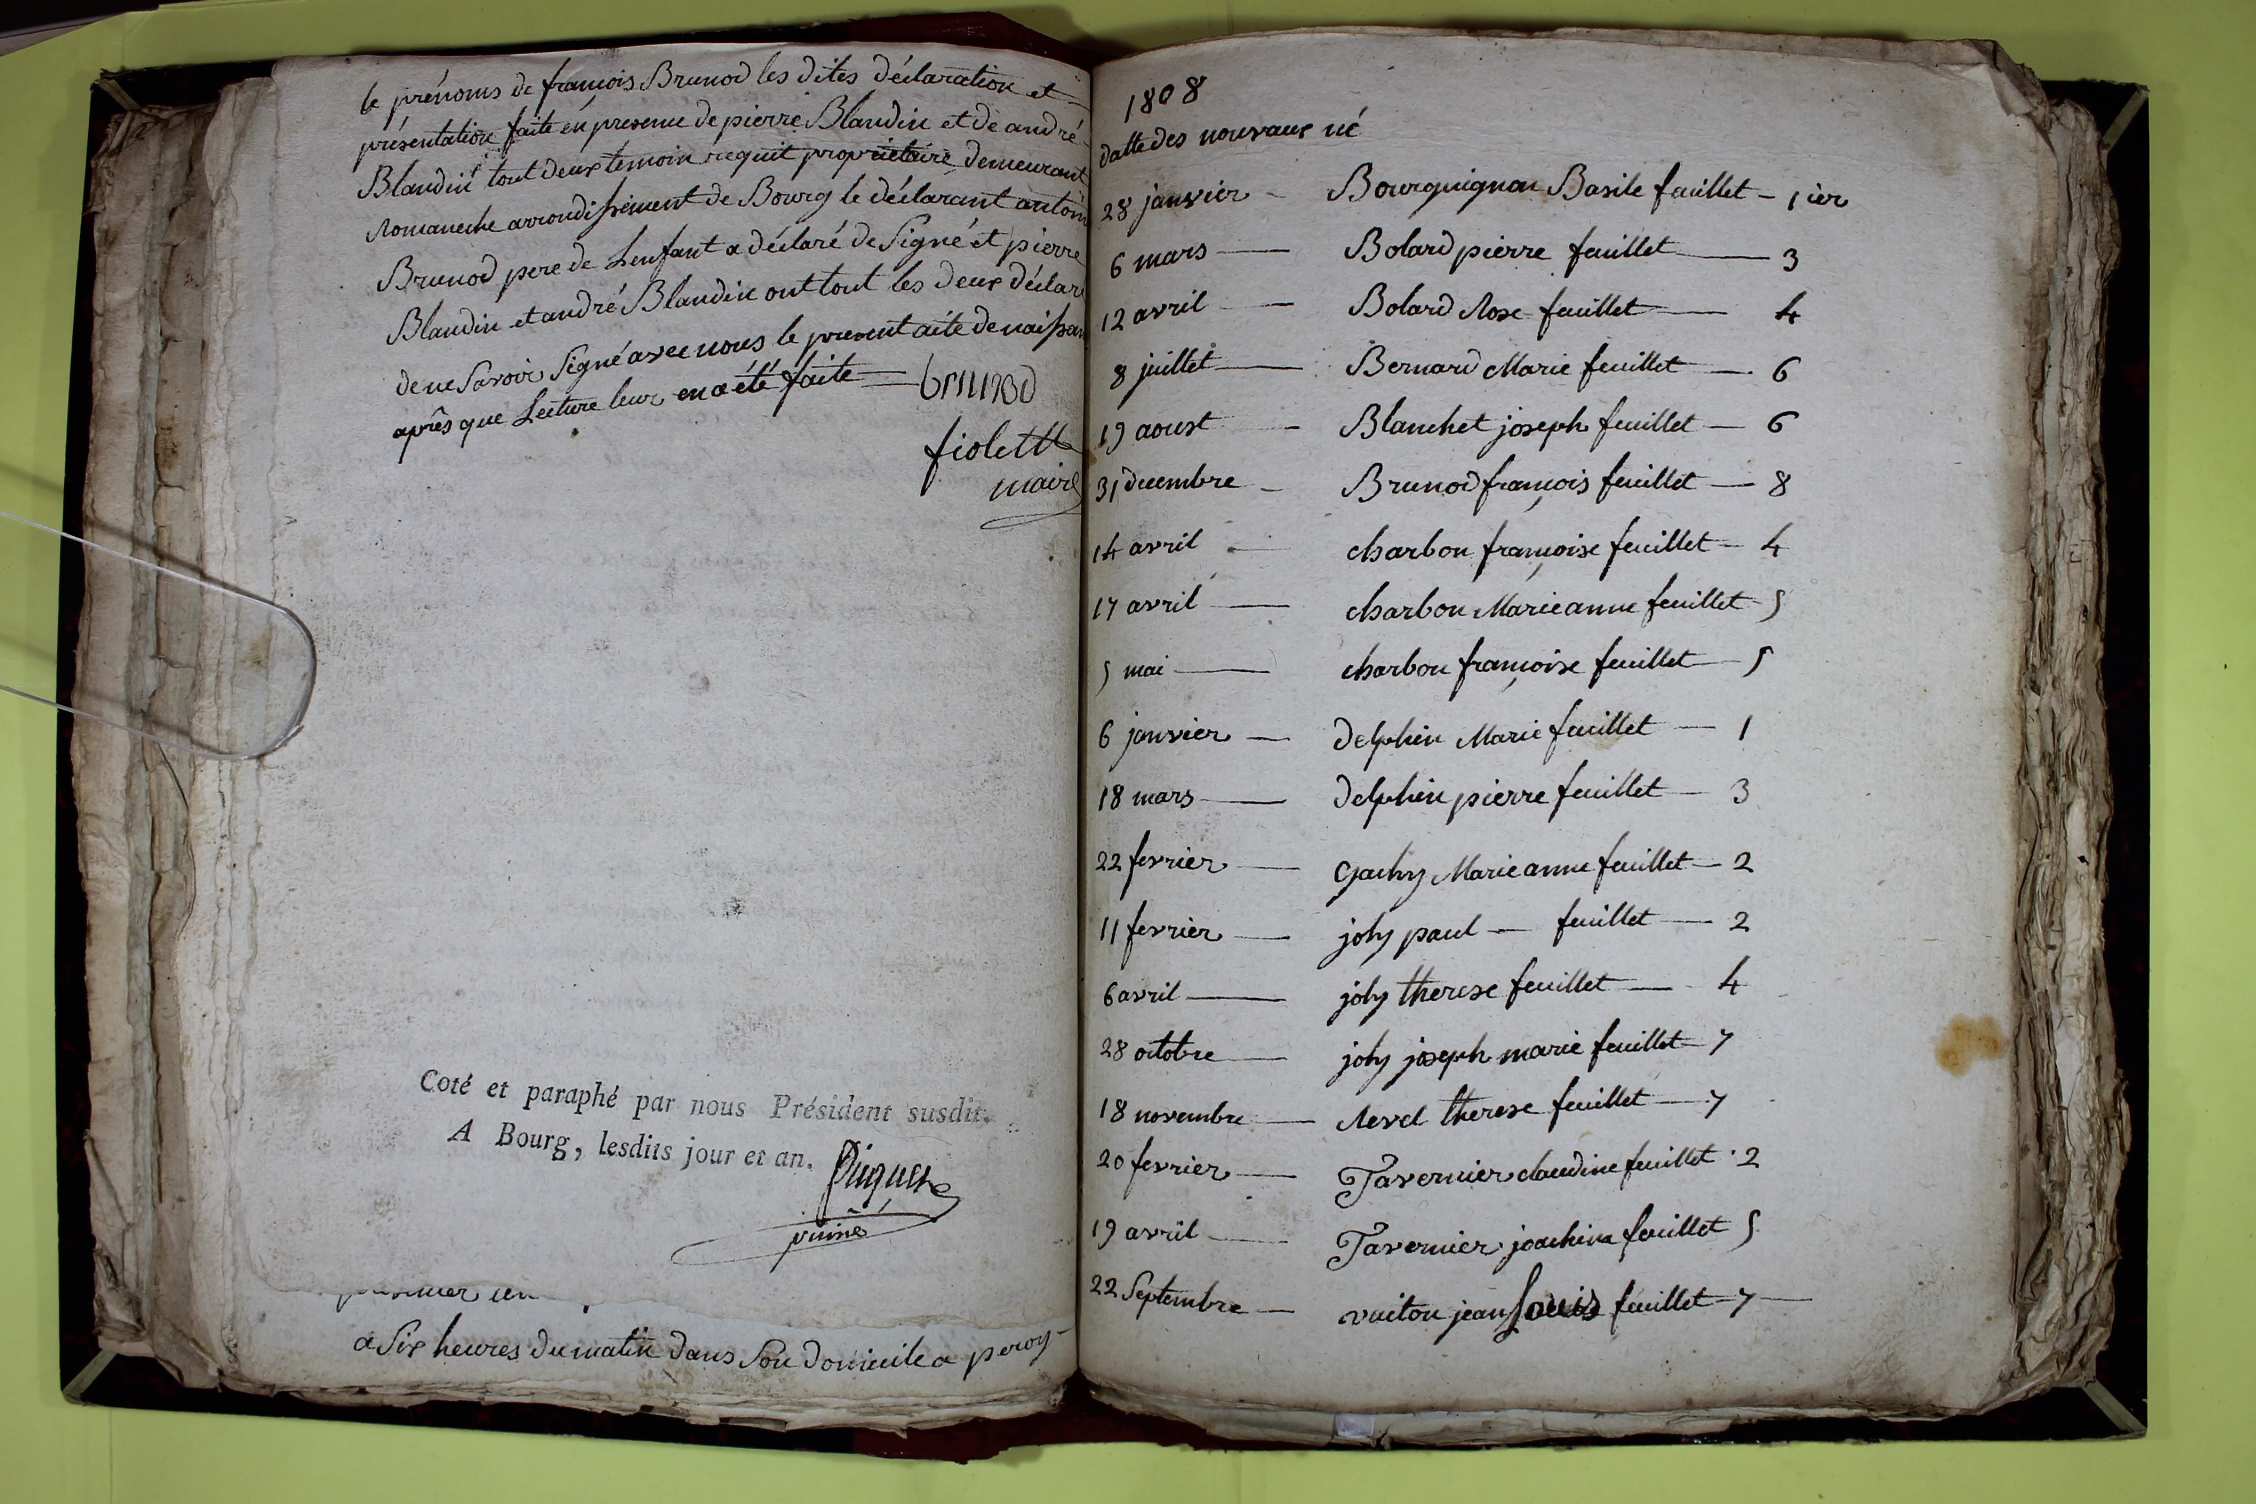 le prénoms de françois Brunod les dites déclaration et
présentation faite en presence de pierre Blandin et de andré
Blandin tout deux temoin requit propriétaire demeurant
Romaneche arrondissement de Bourg le déclarant antoin
Brunod pere de Lenfant a déclaré de Signé et pierre
Blandin et andré Blandin ont tout les deux déclaré
de ne Savoir Signé avec nous le present acte de naissan
après que Lecture leur en a été faite
brunod
fiolett
maire
Coté et paraphé par nous Président susdit.
A Bourg, lesdits jour et an.
a Six heures du matin dans Son domicile a peroy
1808
datte des nouvaux né
28 janvier - Bourguignon Basile feuillet - 1ier
6 mars - Bolard pierre feuillet - 3
12 avril - Bolard Rose feuillet - 4
8 juillet - Bernard Marie feuillet - 6
19 aoust - Blanchet joseph feuillet - 6
31 decembre - Brunod françois feuillet - 8
14 avril - charbon françoise feuillet - 4
17 avril - charbon Marieanne feuillet - 5
5 mai - charbon françoise feuillet - 5
6 janvier - delphin Marie feuillet - 1
18 mars - delphin pierre feuillet - 3
22 fevrier - Gachy Marieanne feuillet - 2
11 fevrier - joly paul - feuillet - 2
6 avril - joly therese feuillet - 4
28 octobre - joly joseph marie feuillet - 7
18 novembre - Revel therese feuillet - 7
20 fevrier - Tavernier claudine feuillet - 2
19 avril - Tavernier joachim feuillet 5
22 Septembre - vuiton jean Louis feuillet - 7 -